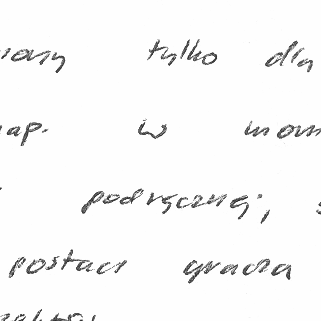 tylko dla
nap. w mom
podręcznej,
postaci gracza